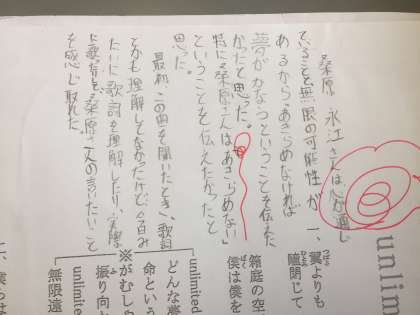 桑原 永江さんは人が通じ
ていることを無限の可能性が
あるから、あきらめなければ
夢がかなうということを伝えた
かったと思った。
特に桑原さんは「あきらめない」
ということを伝えたかったと
思った。
最初この曲を聞いたとき、歌詞
とかも理解してなかったけど、
たいに歌詞を理解したり、実際
に歌うと、桑原さんの言いたいこと
を感じ取れた。
unlim
一、翼よりも
瞳閉じて
箱庭の空
僕は僕を
unlimited
どんな夢
命という
※がむしゃ
振り向か
unlimited
無限遠